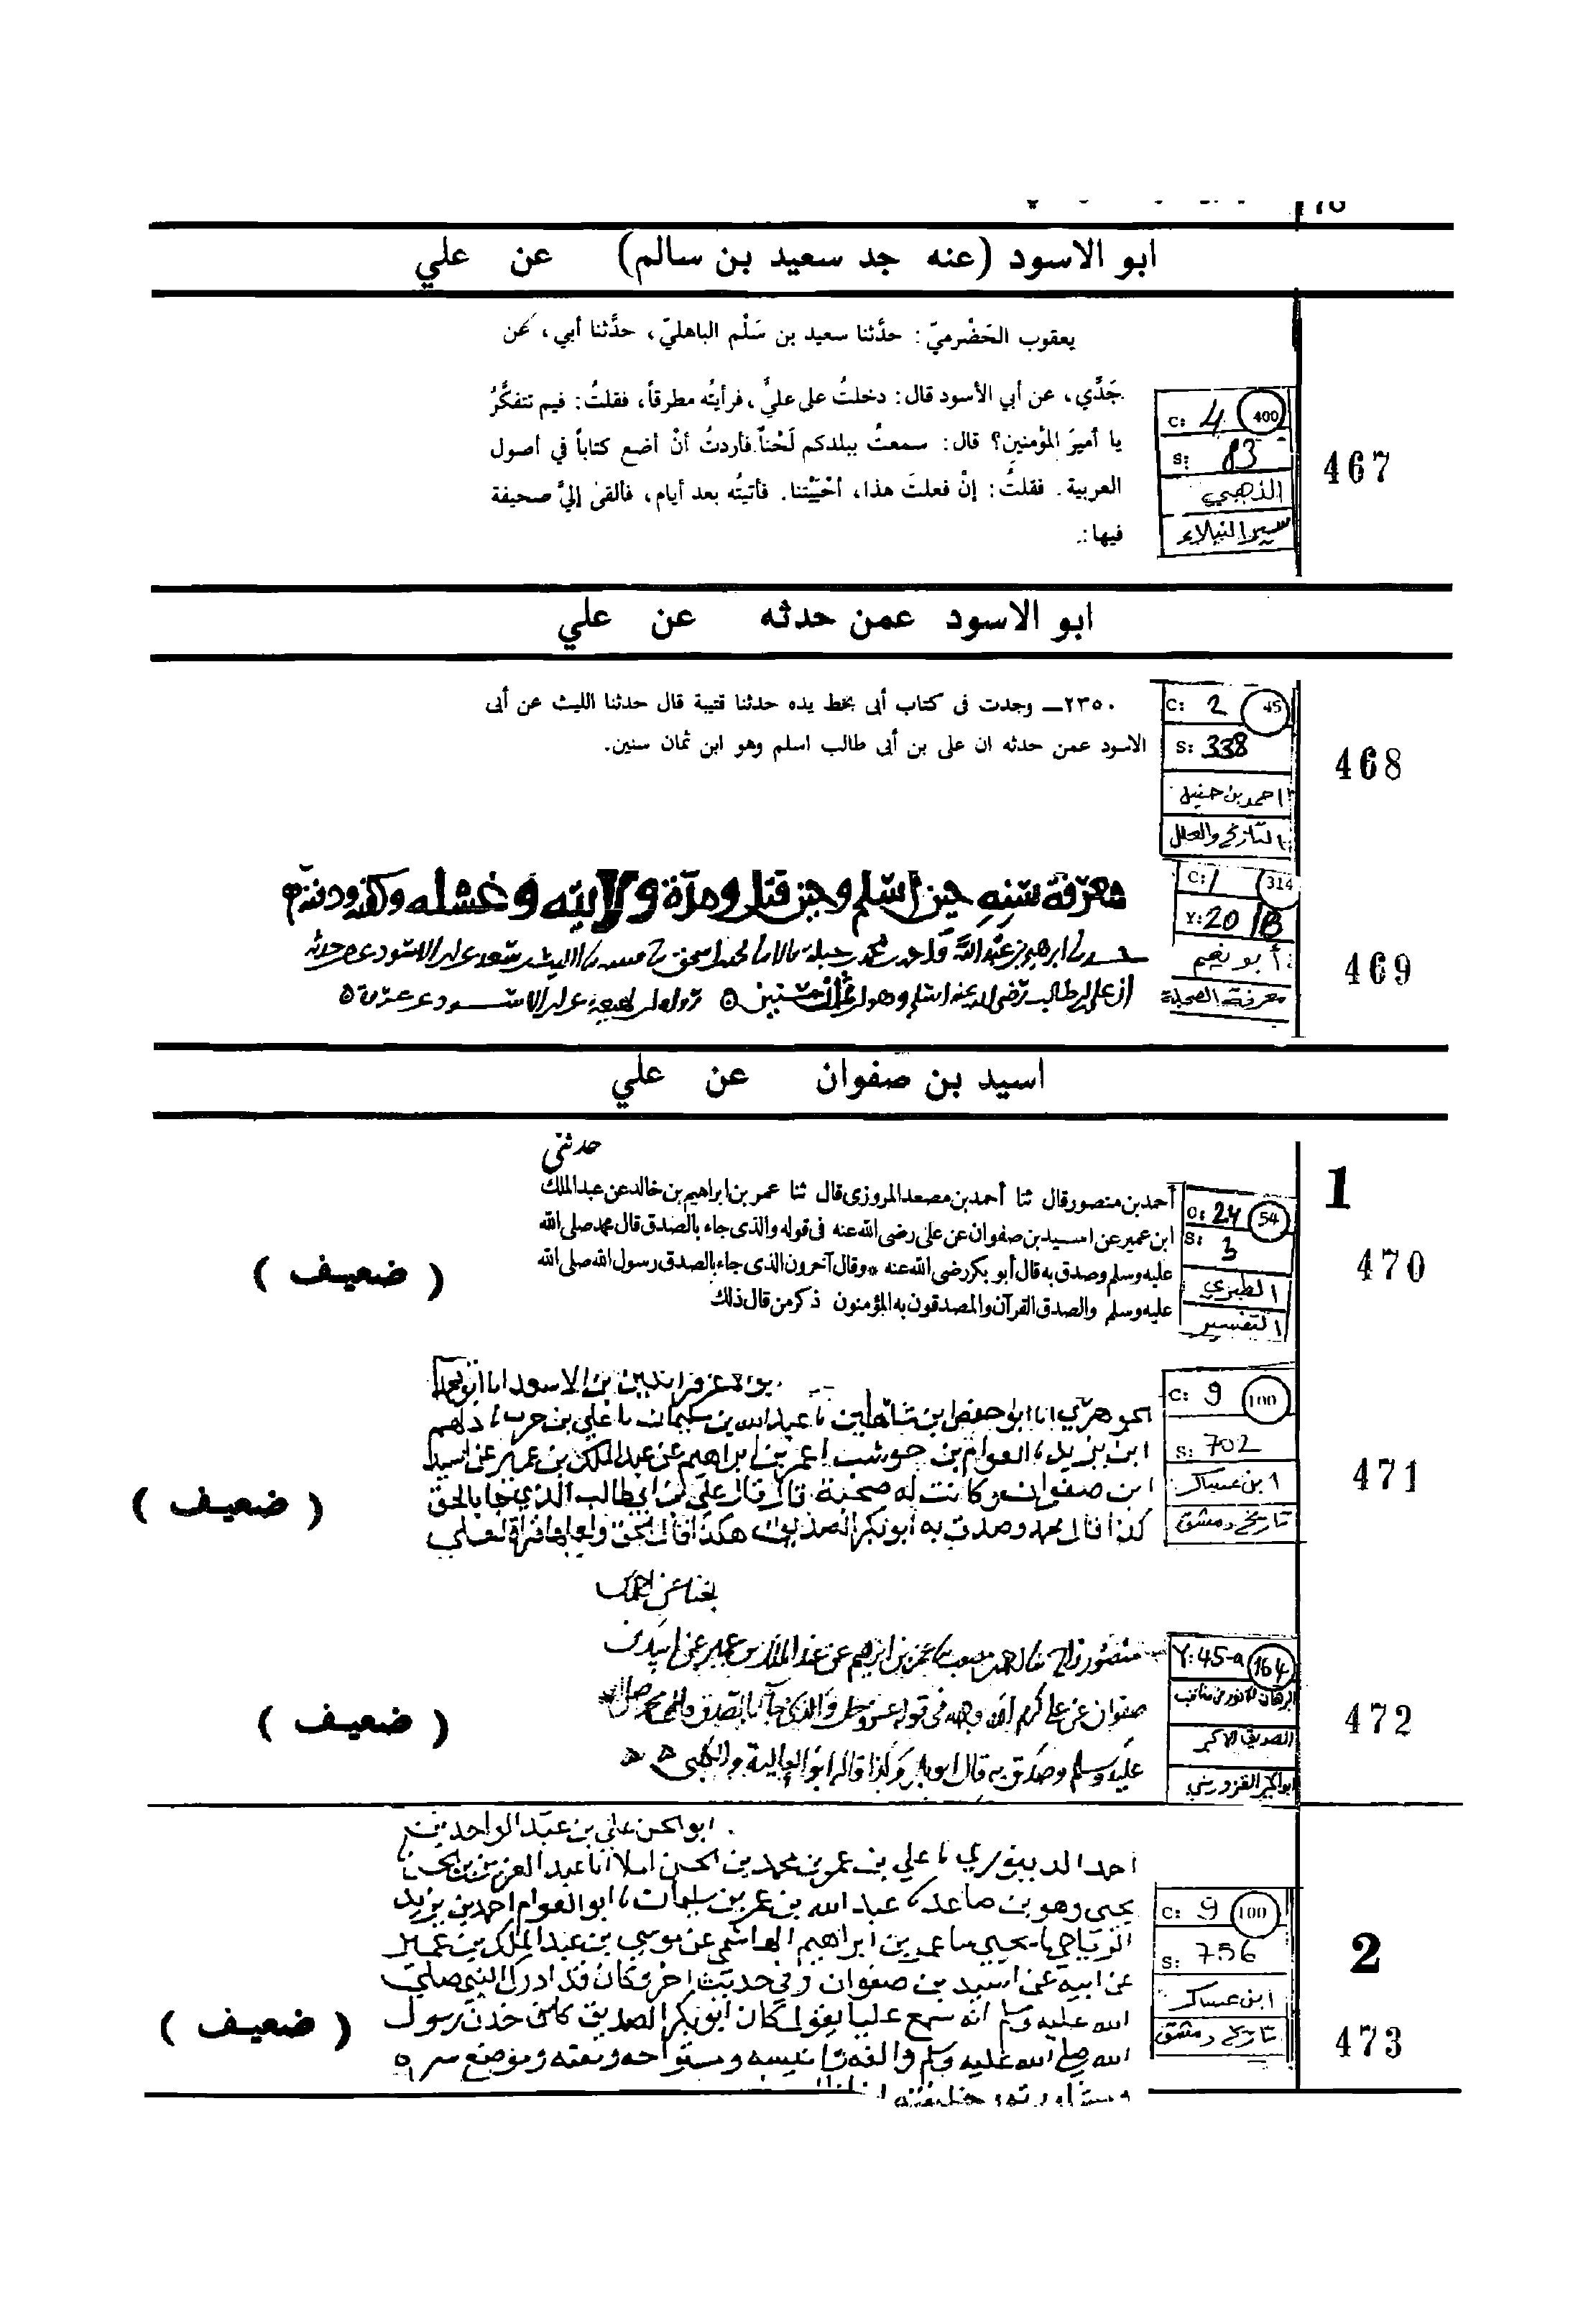 ابو الاسود (عنه جد سعيد بن سالم) عن علي
يعقوب الحَضْرميّ: حدَّثنا سعيد بن سَلْم الباهليّ، حدَّثنا أبي، عن
جَدِّي، عن أبي الأسود قال: دخلتُ على عليٍّ، فرأيتُه مطرقاً، فقلتُ: فيم تتفكَّرُ
يا أميرَ المؤمنين؟ قال: سمعتُ ببلدكم لَحْناً فأردتُ أنْ أضع كتاباً في أصول
العربية. فقلتُ: إنْ فعلتَ هذا، أحْيَيْتنا. فأتيتُه بعد أيام، فألقىٰ إليَّ صحيفة
فيها:
C: 4 400
S: 83
الذهبي
سير النبلاء
467
ابو الاسود عمن حدثه عن علي
٢٣٥٠ــ وجدت فى كتاب أبى بخط يده حدثنا قتيبة قال حدثنا الليث عن أبى
الاسود عمن حدثه ان على بن أبى طالب اسلم وهو ابن ثمان سنين.
C: 2 45
S: 338
احمد بن حنبل
التاريخ والعلل
468
معرفة سنه حين اسلم وحين قتل ومدة ولايته وغسله وكفنه ودفنه
C: 1 314
Y: 20 B
أبو نعيم
معرفة الصحابة
469
اسيد بن صفوان عن علي
حدثنى
أحمد بن منصور قال ثنا أحمد بن مصعد المروزى قال ثنا عمر بن ابراهيم بن خالد عن عبد الملك
ابن عمير عن اسيد بن صفوان عن على رضى الله عنه فى قوله والذى جاء بالصدق قال محمد صلى الله
عليه وسلم وصدق به قال أبو بكر رضى الله عنه * وقال آخرون الذى جاء بالصدق رسول الله صلى الله
عليه وسلم والصدق القرآن والمصدقون به المؤمنون ذكر من قال ذلك
( ضعيف )
O: 24 54
S: 3
الطبري
التفسير
1
470
الجوهري انا ابو حفص ابن شاهين نا عبد الله بن سليمان نا علي بن حرب نا دلهم
ابن يزيد نا العوام بن حوشب نا عمر بن ابراهيم عن عبد الملك بن عمير عن اسيد
ابن صفوان وكانت له صحبة قال قال علي بن ابي طالب الذي جا بالحق
كذا قال محمد وصدق به ابو بكر الصديق هكذا قال بالحق ولعلها قراة لعلي
( ضعيف )
C: 9 100
S: 702
ابن عساكر
تاريخ دمشق
471
صفوان عن علي كرم الله وجهه في قوله عز وجل والذي جآ بالصدق
عليه وسلم وصدق به قال ابو بكر وكذا قاله ابو العالية والكلبي
( ضعيف )
Y: 45-a 164
الصديق الاكبر
ابو الخير القزويني
472
ابو الحسن علي بن عبد الواحد بن
احمد الدينوري نا علي بن عمر بن محمد بن الحسن املا انا عبد العزيز
يحيى وهو بن صاعد نا عبد الله بن عمر بن سليمان نا ابو العوام احمد بن يزيد
الرياحي نا يحيى نا عمر بن ابراهيم الهاشمي عن موسى بن عبد الملك بن عمير
عن ابيه عن اسيد بن صفوان وفي حديث اخر وكان قد ادرك النبي صلى
الله عليه وسلم انه سمع عليا يقول كان ابو بكر الصديق خدن رسول
الله صلى الله عليه وسلم والفه وانيسه ومستراحه وثقته وموضع سره
( ضعيف )
C: 9 100
S: 756
ابن عساكر
تاريخ دمشق
2
473